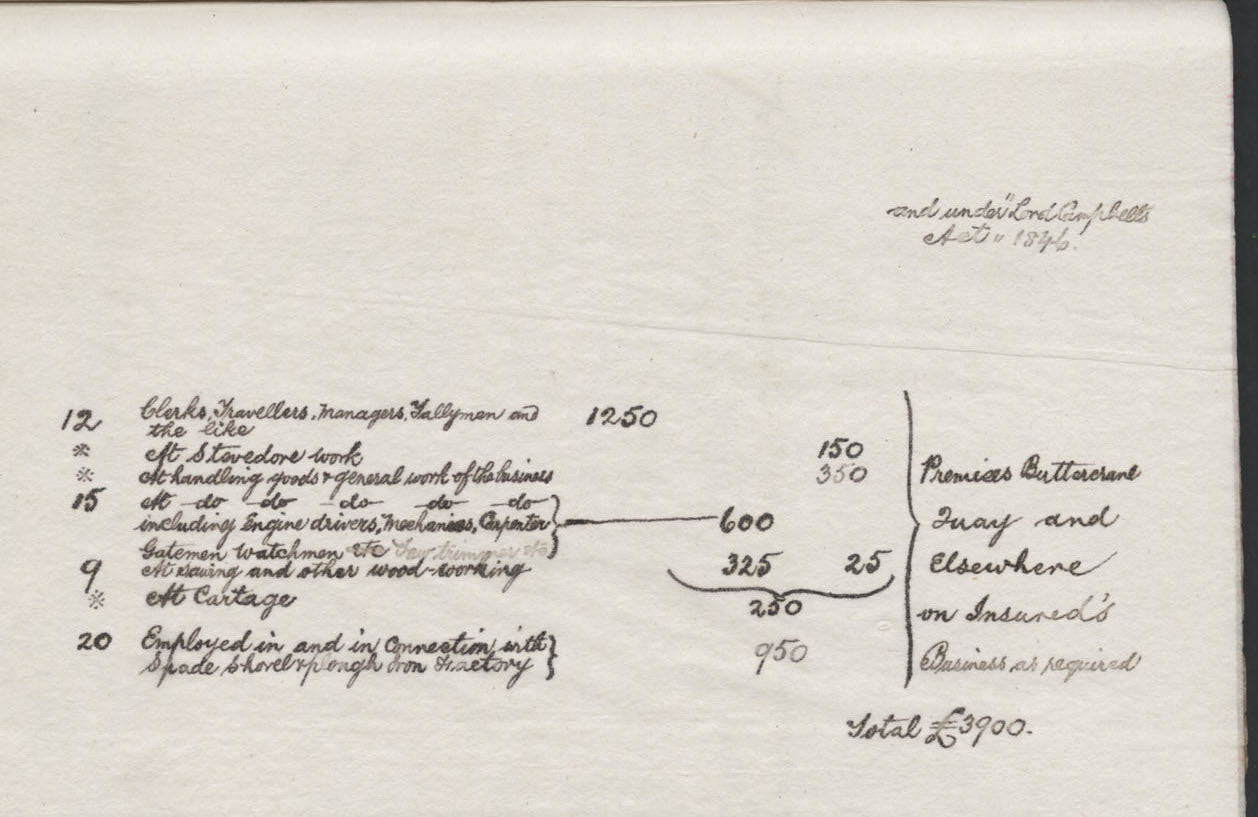 and under "Lord Campbells
Act" 1846.
12 Clerks, Travellers, Managers, Tallymen and 1250
the like
※ At Stevedore work 150
※ At handling goods & general work of the business 350 Premises Buttercrane
15 At do do do do do
including Engine drivers, Mechanics, Carpenter 600 Quay and
Gatemen Watchmen etc Saw trimmer etc
9 At sawing and other wood-working 325 25 Elsewhere
※ At Cartage 250 on Insured's
20 Employed in and in connection with 950
Spade Shovel & plough Iron Factory Business as required
Total £3900.